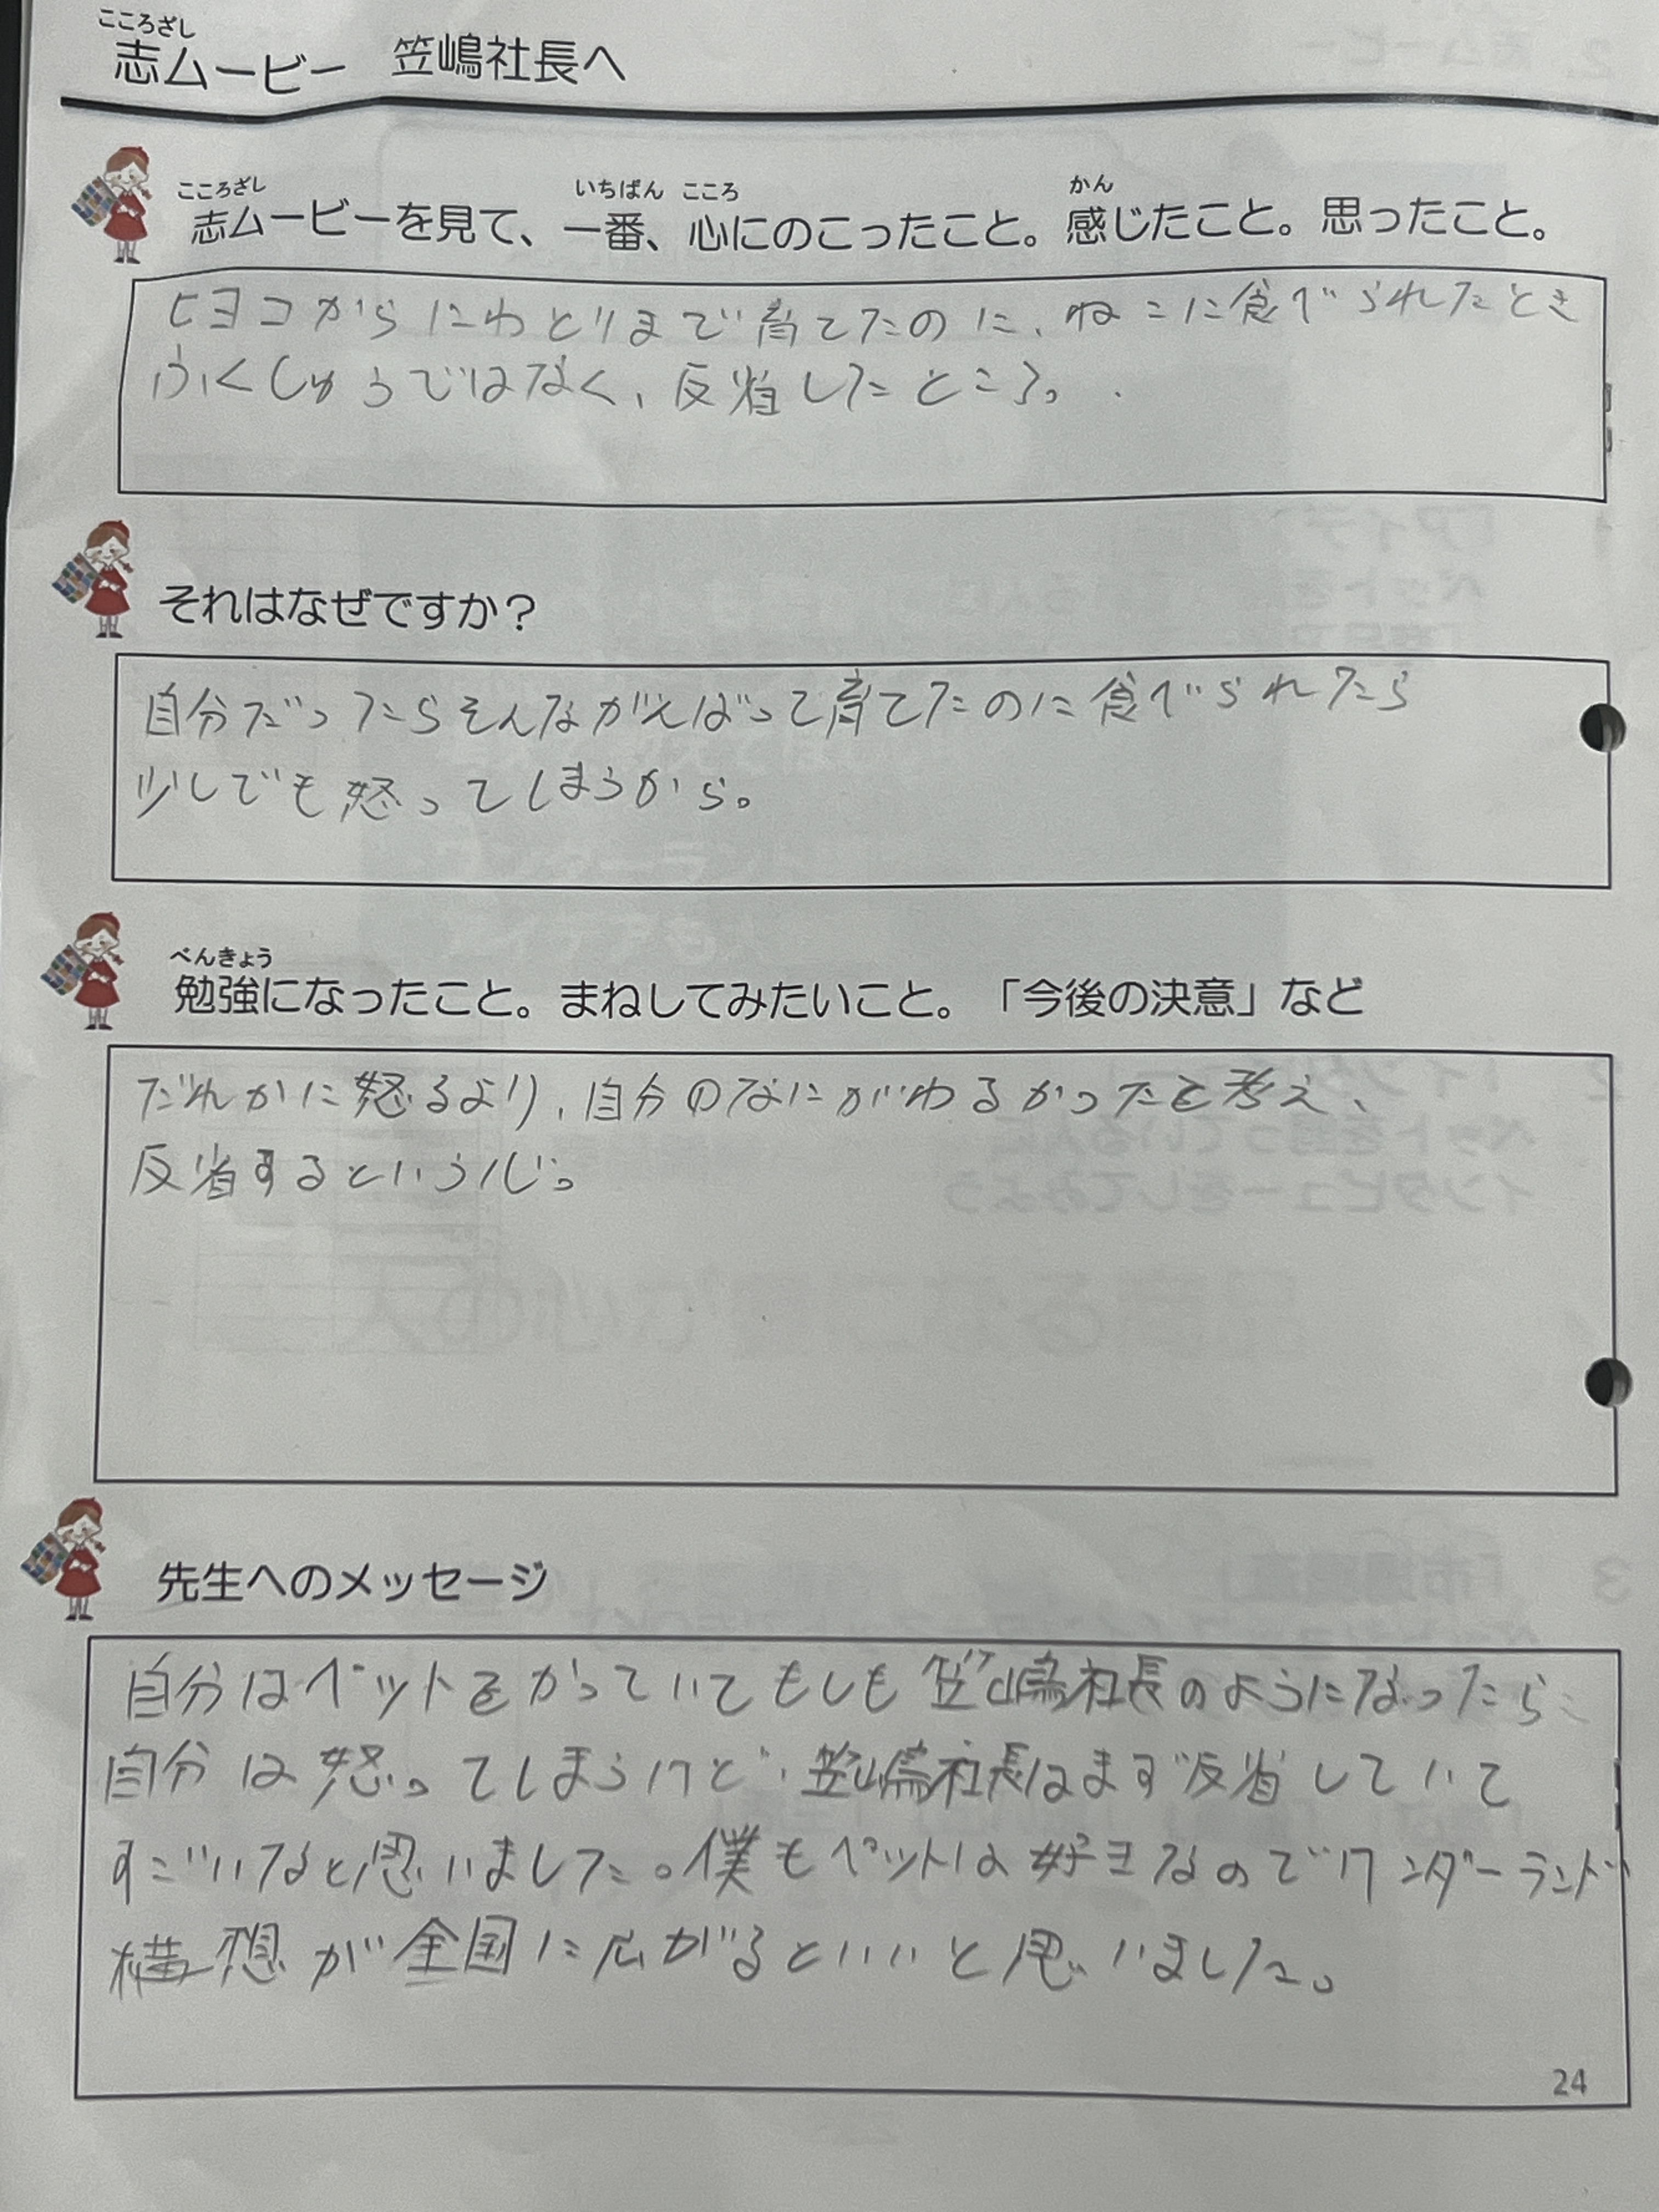 こころざし
志ムービー 笠嶋社長へ
こころざし いちばん こころ かん
志ムービーを見て、一番、心にのこったこと。感じたこと。思ったこと。
ヒヨコからにわとりまで育てたのに、ねこに食べられたとき
ふくしゅうではなく、反省したところ。
それはなぜですか？
自分だったらそんながんばって育てたのに食べられたら
少しでも怒ってしまうから。
べんきょう
勉強になったこと。まねしてみたいこと。「今後の決意」など
だれかに怒るより、自分のなにがわるかったと考え、
反省するという心。
先生へのメッセージ
自分はペットをかっていてもしも笠嶋社長のようになったら
自分は怒ってしまうけど、笠嶋社長はまず反省していて
すごいなと思いました。僕もペットは好きなのでワンダーランド
構想が全国に広がるといいと思いました。
24